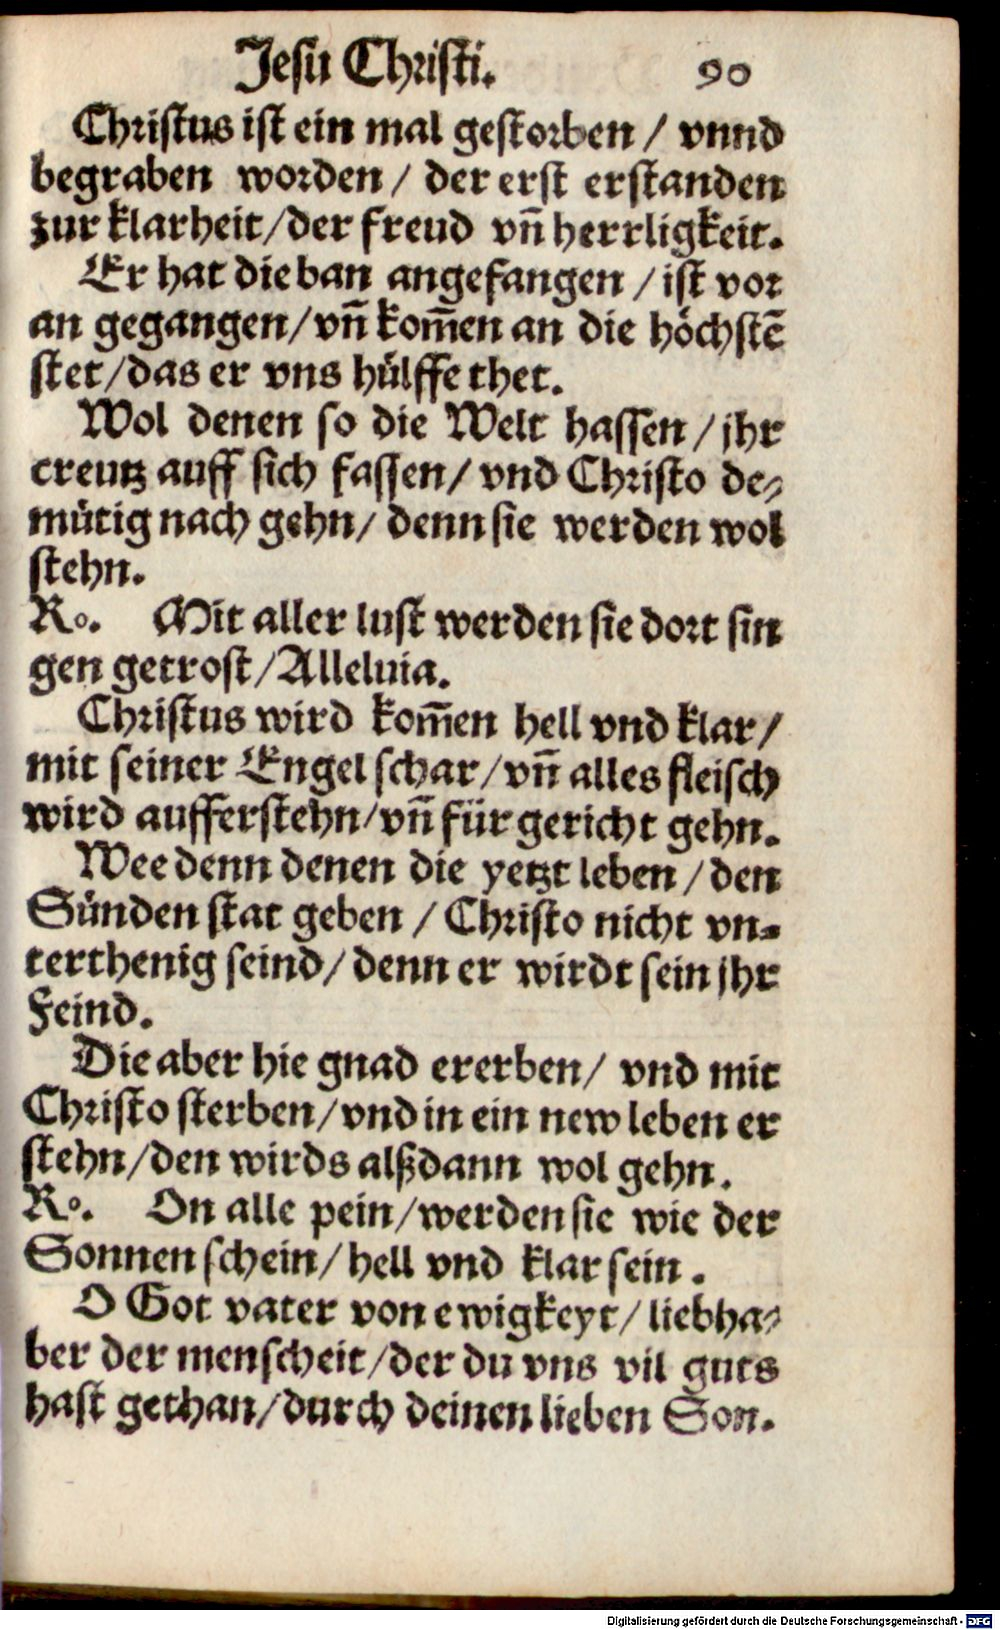 Jesu Christi. 90
Christus ist ein mal gestorben / vnnd
begraben worden / der erst erstanden
zur klarheit / der freud vñ herrligkeit.
Er hat die ban angefangen / ist vor
an gegangen / vñ kom̄en an die höchstē
stet / das er vns hülffe thet.
Wol denen so die Welt hassen / jhr
creutz auff sich fassen / vnd Christo de⸗
mütig nach gehn / denn sie werden wol
stehn.
Ro. Mit aller lust werden sie dort sin
gen getrost / Alleluia.
Christus wird kom̄en hell vnd klar /
mit seiner Engel schar / vñ alles fleisch
wird aufferstehn / vñ für gericht gehn.
Wee denn denen die yetzt leben / den
Sünden stat geben / Christo nicht vn⸗
terthenig seind / denn er wirdt sein jhr
Feind.
Die aber hie gnad ererben / vnd mit
Christo sterben / vnd in ein new leben er
stehn / den wirds alßdann wol gehn.
Ro. On alle pein / werden sie wie der
Sonnen schein / hell vnd klar sein.
O Got vater von ewigkeyt / liebha⸗
ber der menscheit / der du vns vil guts
hast gethan / durch deinen lieben Son.
Digitalisierung gefördert durch die Deutsche Forschungsgemeinschaft - DFG